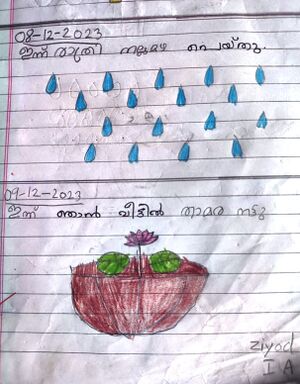 08-12-2023
ഇന്ന് രാത്രി നല്ലമഴ പെയ്തു.
09-12-2023
ഇന്ന് ഞാൻ വീട്ടിൽ താമര നട്ടു
ziyad
I A